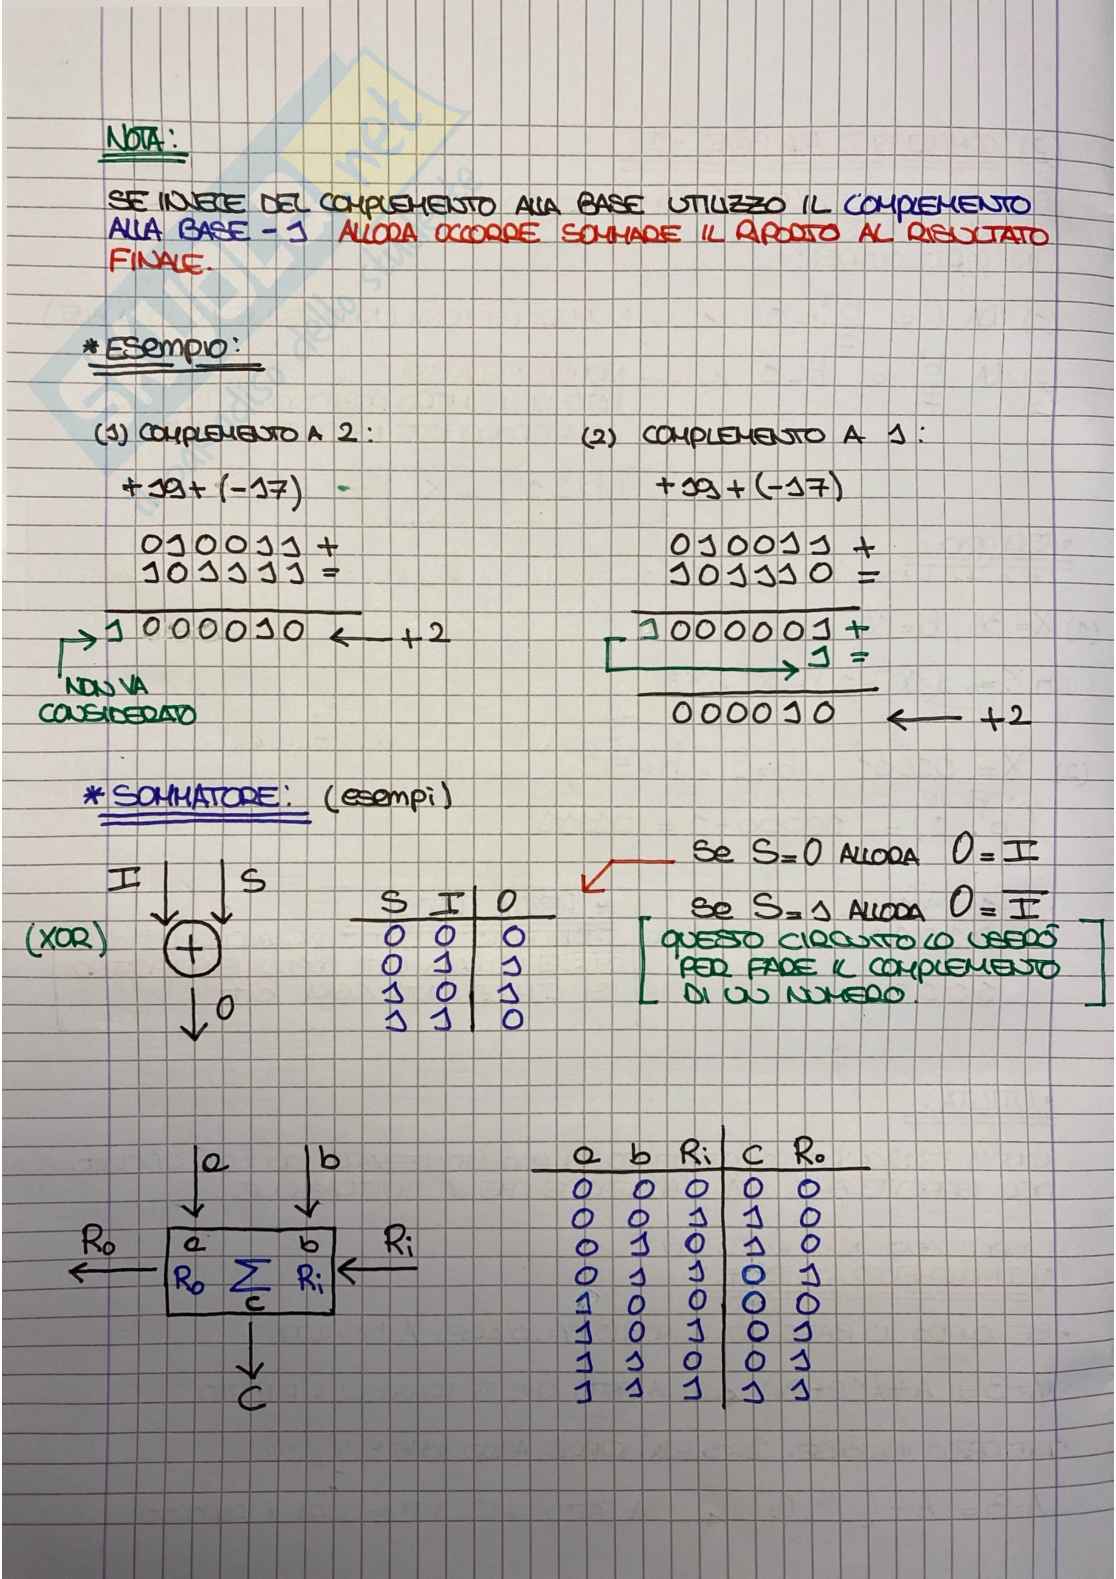 NOTA:
SE INVECE DEL COMPLEMENTO ALLA BASE UTILIZZO IL COMPLEMENTO
ALLA BASE - 1 ALLORA OCCORRE SOMMARE IL RIPORTO AL RISULTATO
FINALE.
* ESEMPIO:
(1) COMPLEMENTO A 2:
+19+(-17)
010011 +
101111 =
1 000010 ← +2
NON VA
CONSIDERATO
(2) COMPLEMENTO A 1:
+19+(-17)
010011 +
101110 =
1000001 +
1 =
000010 ← +2
* SOMMATORE: (esempi)
I S
(XOR) +
O
S I O
0 0 0
0 1 1
1 0 1
1 1 0
Se S=0 ALLORA O=I
Se S=1 ALLORA O=I̅
[QUESTO CIRCUITO LO USERÒ
PER FARE IL COMPLEMENTO
DI UN NUMERO.]
a b
Ro a b Ri
Ro Σ Ri
c
C
a b Ri C Ro
0 0 0 0 0
0 0 1 1 0
0 1 0 1 0
0 1 1 0 1
1 0 0 0 0
1 0 1 0 1
1 1 0 0 1
1 1 1 1 1